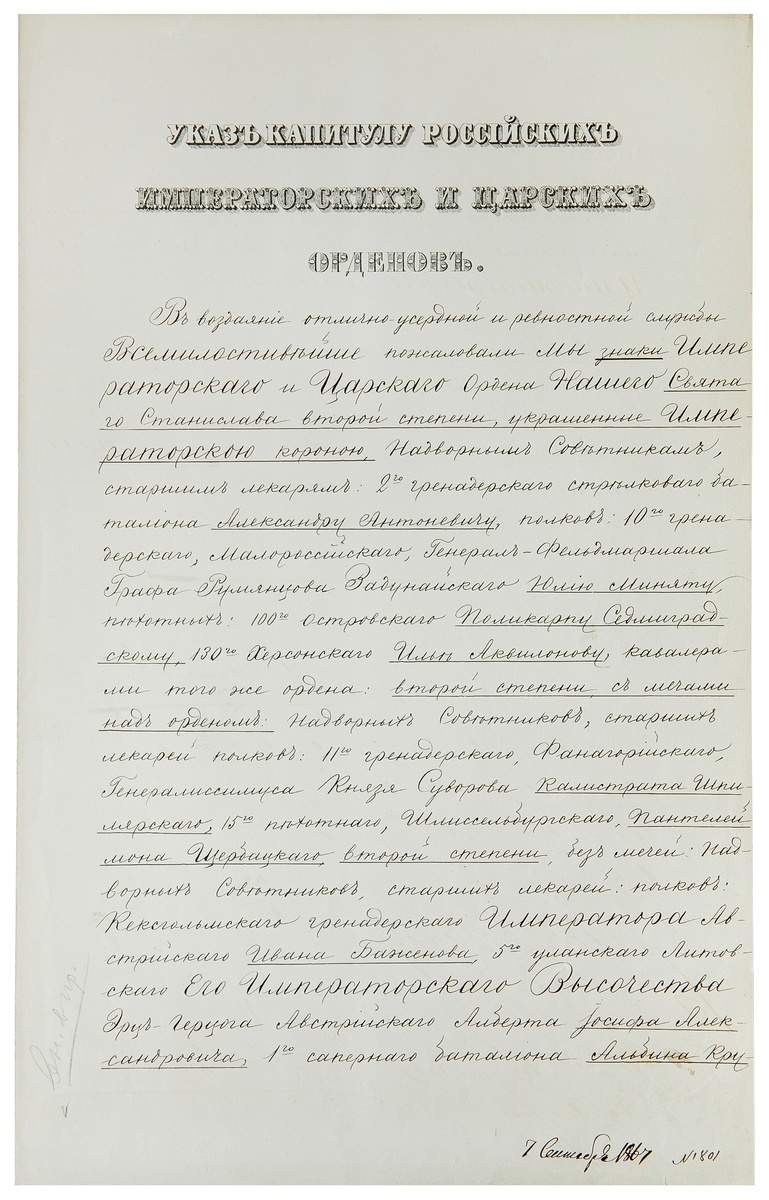 УКАЗЪ КАПИТУЛУ РОССІЙСКИХЪ
ИМПЕРАТОРСКИХЪ И ЦАРСКИХЪ
ОРДЕНОВЪ.
Въ воздаяніе отлично-усердной и ревностной службы
Всемилостивѣйше пожаловали Мы знаки Импе
раторскаго и Царскаго Ордена Нашего Свята
го Станислава второй степени, украшенные Импе-
раторскою короною, Надворнымъ Совѣтникамъ,
старшимъ лекарямъ: 2го гренадерскаго стрѣлковаго ба-
таліона Александру Антоневичу, полковъ: 10го грена-
дерскаго, Малороссійскаго, Генералъ-Фельдмаршала
Графа Румянцова Задунайскаго Юлію Миняту,
пѣхотныхъ: 100го Островскаго Поликарпу Седмиград-
скому, 130го Херсонскаго Ильѣ Аквилонову, кавалера-
ми того же ордена: второй степени, съ мечами
надъ орденомъ: Надворныхъ Совѣтниковъ, старшихъ
лекарей полковъ: 11го гренадерскаго, Фанагорійскаго,
Генералиссимуса Князя Суворова Калистрата Шпи-
лярскаго, 15го пѣхотнаго, Шлиссельбургскаго, Пантелей
мона Щербацкаго, второй степени, безъ мечей: Над-
ворныхъ Совѣтниковъ, старшихъ лекарей: полковъ:
Кексгольмскаго гренадерскаго Императора Ав-
стрійскаго Ивана Баженова, 5го уланскаго Литов-
скаго Его Императорскаго Высочества
Эрцъ-Герцога Австрійскаго Альберта Іосифа Алек-
сандровича, 1го сапернаго баталіона Альбина Кру-
7 Сентября 1867 №1801